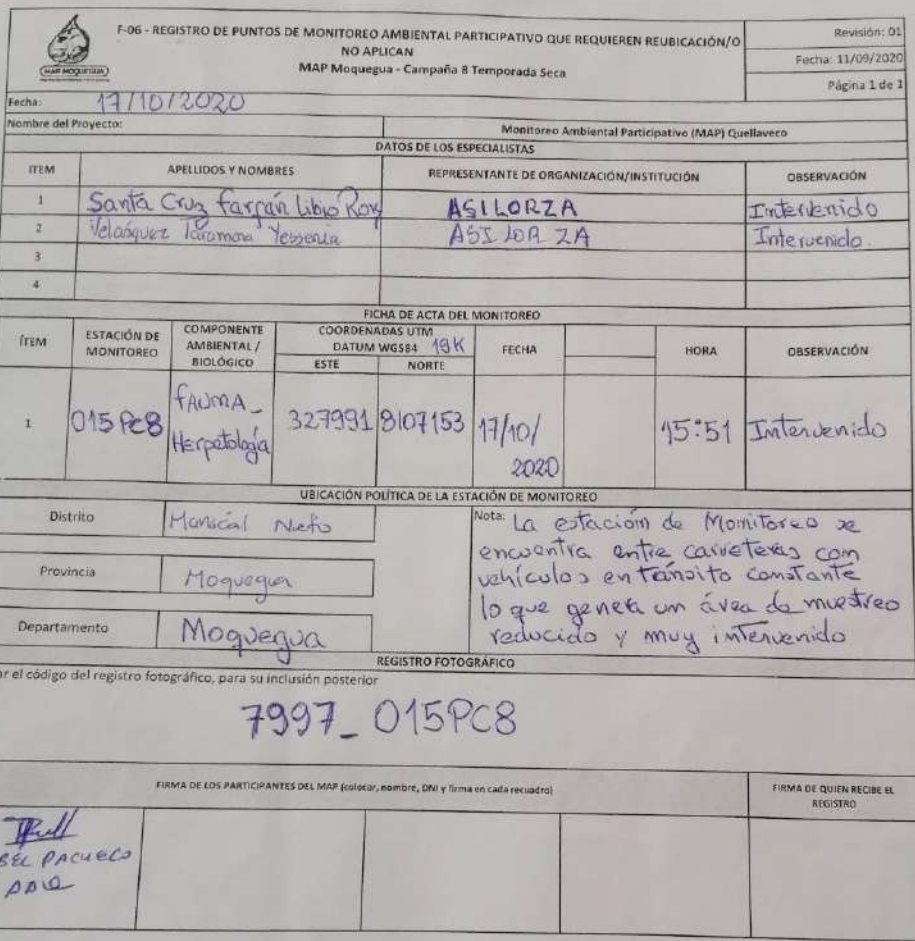 F-06 - REGISTRO DE PUNTOS DE MONITOREO AMBIENTAL PARTICIPATIVO QUE REQUIEREN REUBICACIÓN/O
NO APLICAN
MAP Moquegua - Campaña 8 Temporada Seca
Revisión: 01
Fecha: 11/09/2020
Página 1 de 1
MAP MOQUEGUA
Fecha: 17/10/2020
Nombre del Proyecto: Monitoreo Ambiental Participativo (MAP) Quellaveco
DATOS DE LOS ESPECIALISTAS
ITEM APELLIDOS Y NOMBRES REPRESENTANTE DE ORGANIZACIÓN/INSTITUCIÓN OBSERVACIÓN
1 Santa Cruz farfán Libio Roy ASILORZA Intervenido
2 Velasquez Taramona Yessenia ASILORZA Intervenido.
3
4
FICHA DE ACTA DEL MONITOREO
ÍTEM ESTACIÓN DE MONITOREO COMPONENTE AMBIENTAL / BIOLÓGICO COORDENADAS UTM DATUM WGS84 19K FECHA HORA OBSERVACIÓN
ESTE NORTE
1 015PC8 fAUNA_ Herpetología 327991 8107153 17/10/2020 15:51 Intervenido
UBICACIÓN POLÍTICA DE LA ESTACIÓN DE MONITOREO
Distrito Mariscal Nieto
Provincia Moquegua
Departamento Moquegua
Nota: La estación de Monitoreo se
encuentra entre carreteras con
vehículos en tánsito constante
lo que genera un área de muestreo
reducido y muy intervenido
REGISTRO FOTOGRÁFICO
ar el código del registro fotográfico, para su inclusión posterior
7997_015PC8
FIRMA DE LOS PARTICIPANTES DEL MAP (colocar, nombre, DNI y firma en cada recuadro)
FIRMA DE QUIEN RECIBE EL
REGISTRO
BEL PACHECO